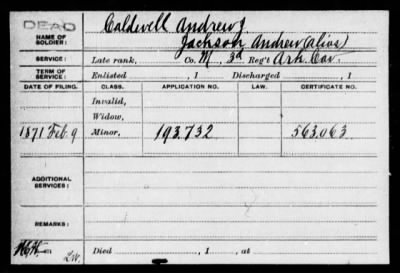 DEAD
NAME OF SOLDIER: Caldwell Andrew J
Jackson Andrew (Alias)
SERVICE: Late rank, Co. M, 3d Reg't Ark. Cav.
TERM OF SERVICE: Enlisted , 1 Discharged , 1
DATE OF FILING. CLASS. APPLICATION NO. LAW. CERTIFICATE NO.
Invalid,
Widow,
1871 Feb. 9 Minor, 193.732 563.063
ADDITIONAL SERVICES:
REMARKS:
Died , 1 , at